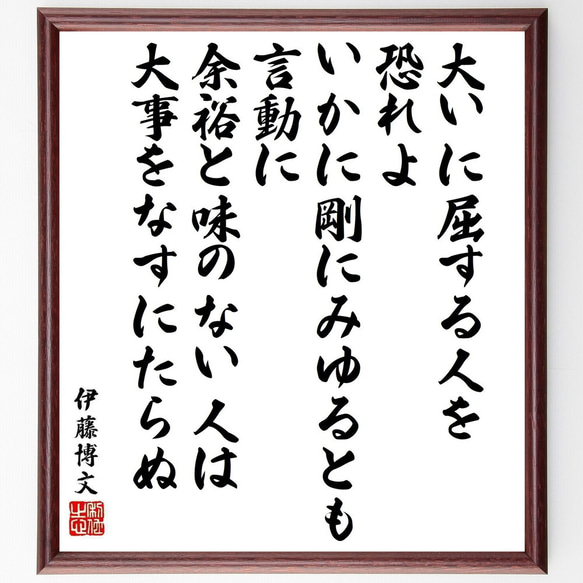 大いに屈する人を
恐れよ
いかに剛にみゆるとも
言動に
余裕と味のない人は
大事をなすにたらぬ
伊藤博文